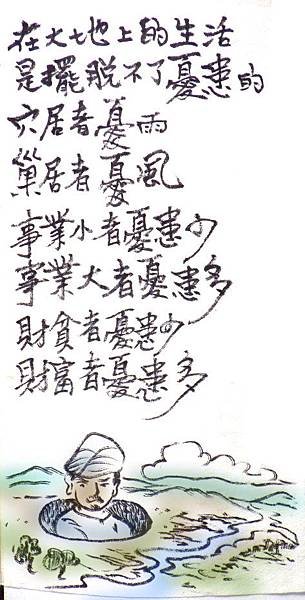 在大地上的生活
是擺脫不了憂患的
穴居者憂雨
巢居者憂風
事業小者憂患少
事業大者憂患多
財貧者憂患少
財富者憂患多